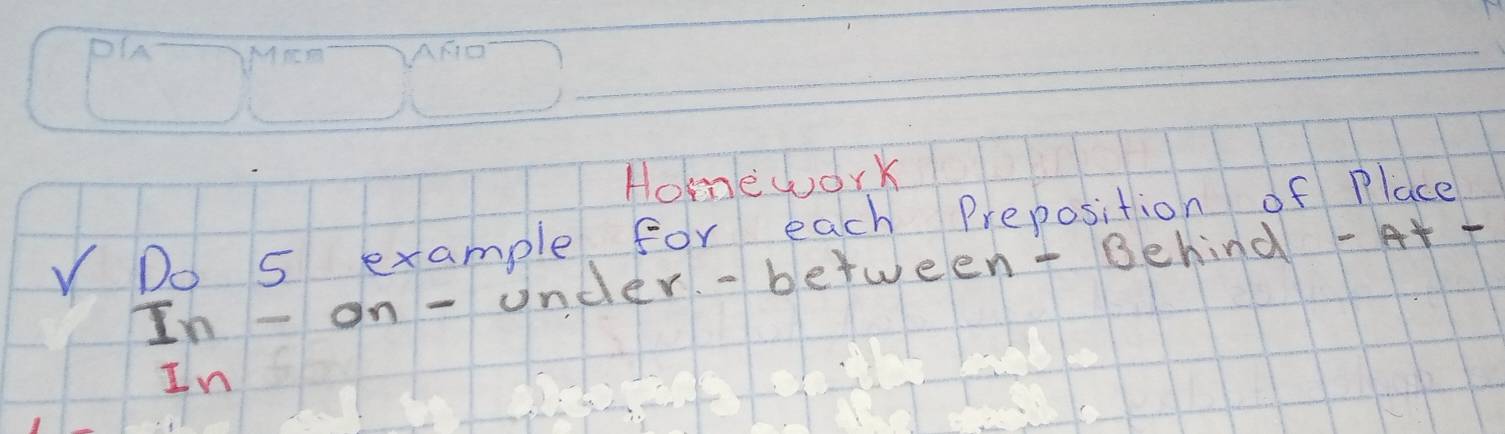 DÍA MES AÑO
Homework
√ Do 5 example for each Preposition of Place
In - on - under. - between - Behind - At -
In